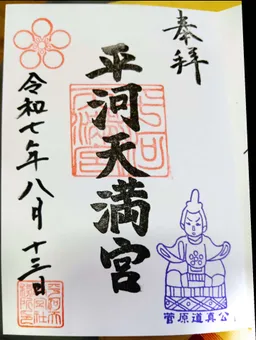 奉拝
平河天満宮
令和七年八月十三日
菅原道真公